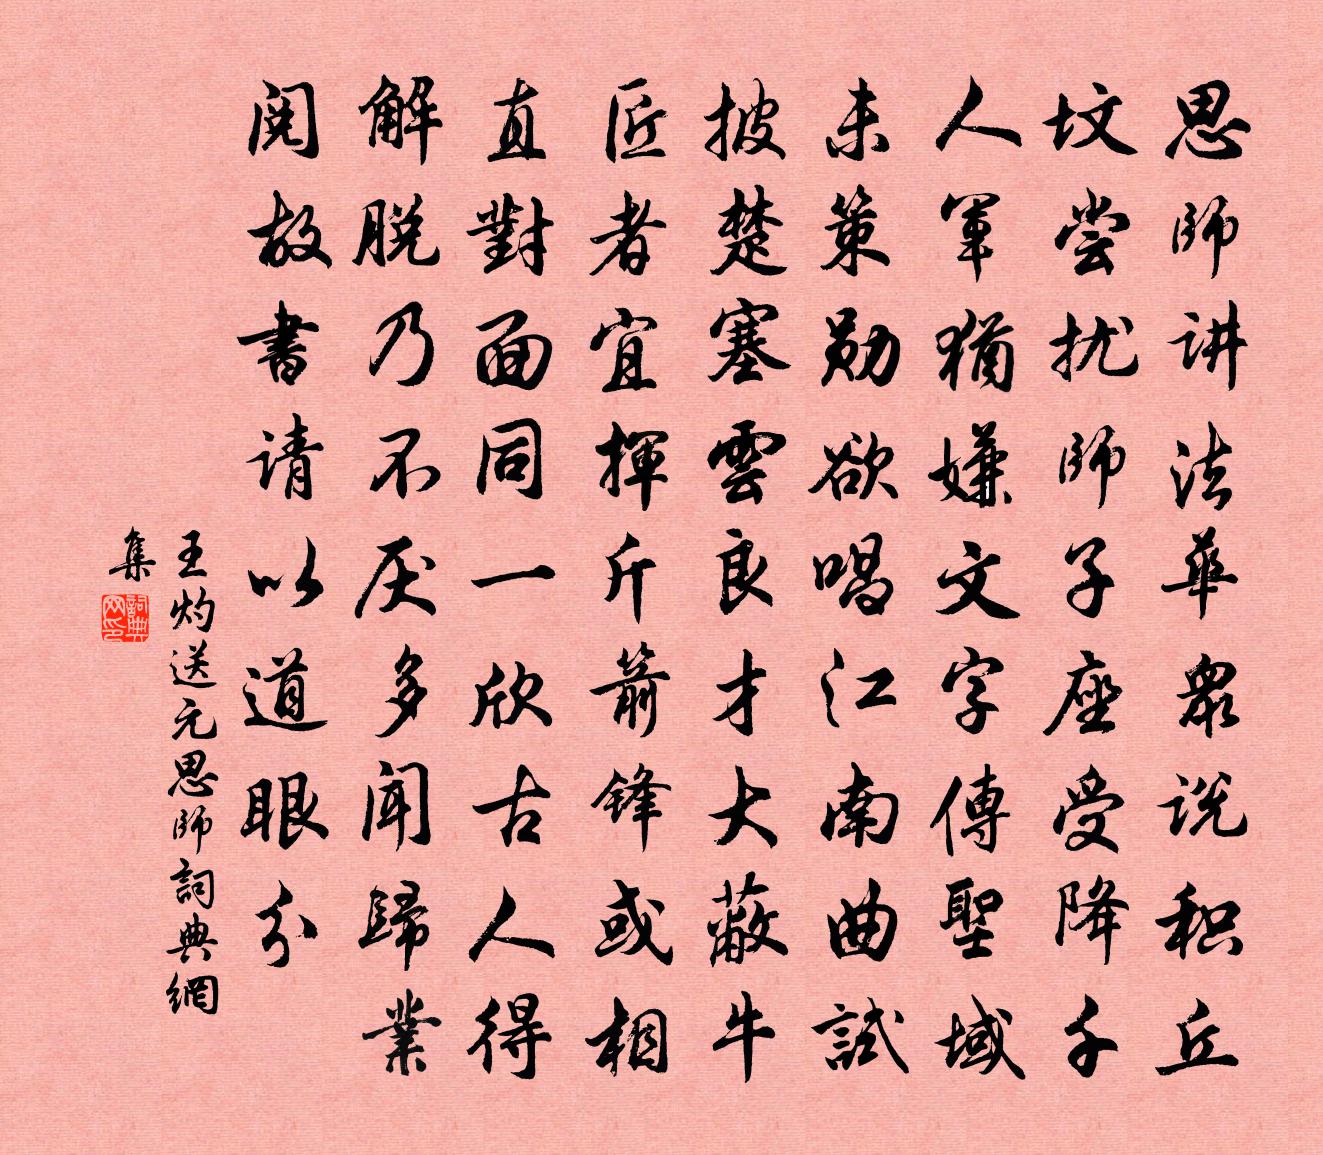 思师讲法華眾说积丘
坟尝扰师子座受降千
人军猶嫌文字傳聖域
未策勋欲唱江南曲試
披楚塞雲良才大蔽牛
匠者宜揮斤箭锋或相
直對面同一欣古人得
解脱乃不厌多闻歸業
阅故書请以道眼分
王灼送元思师詞典網
集
詞典
网印